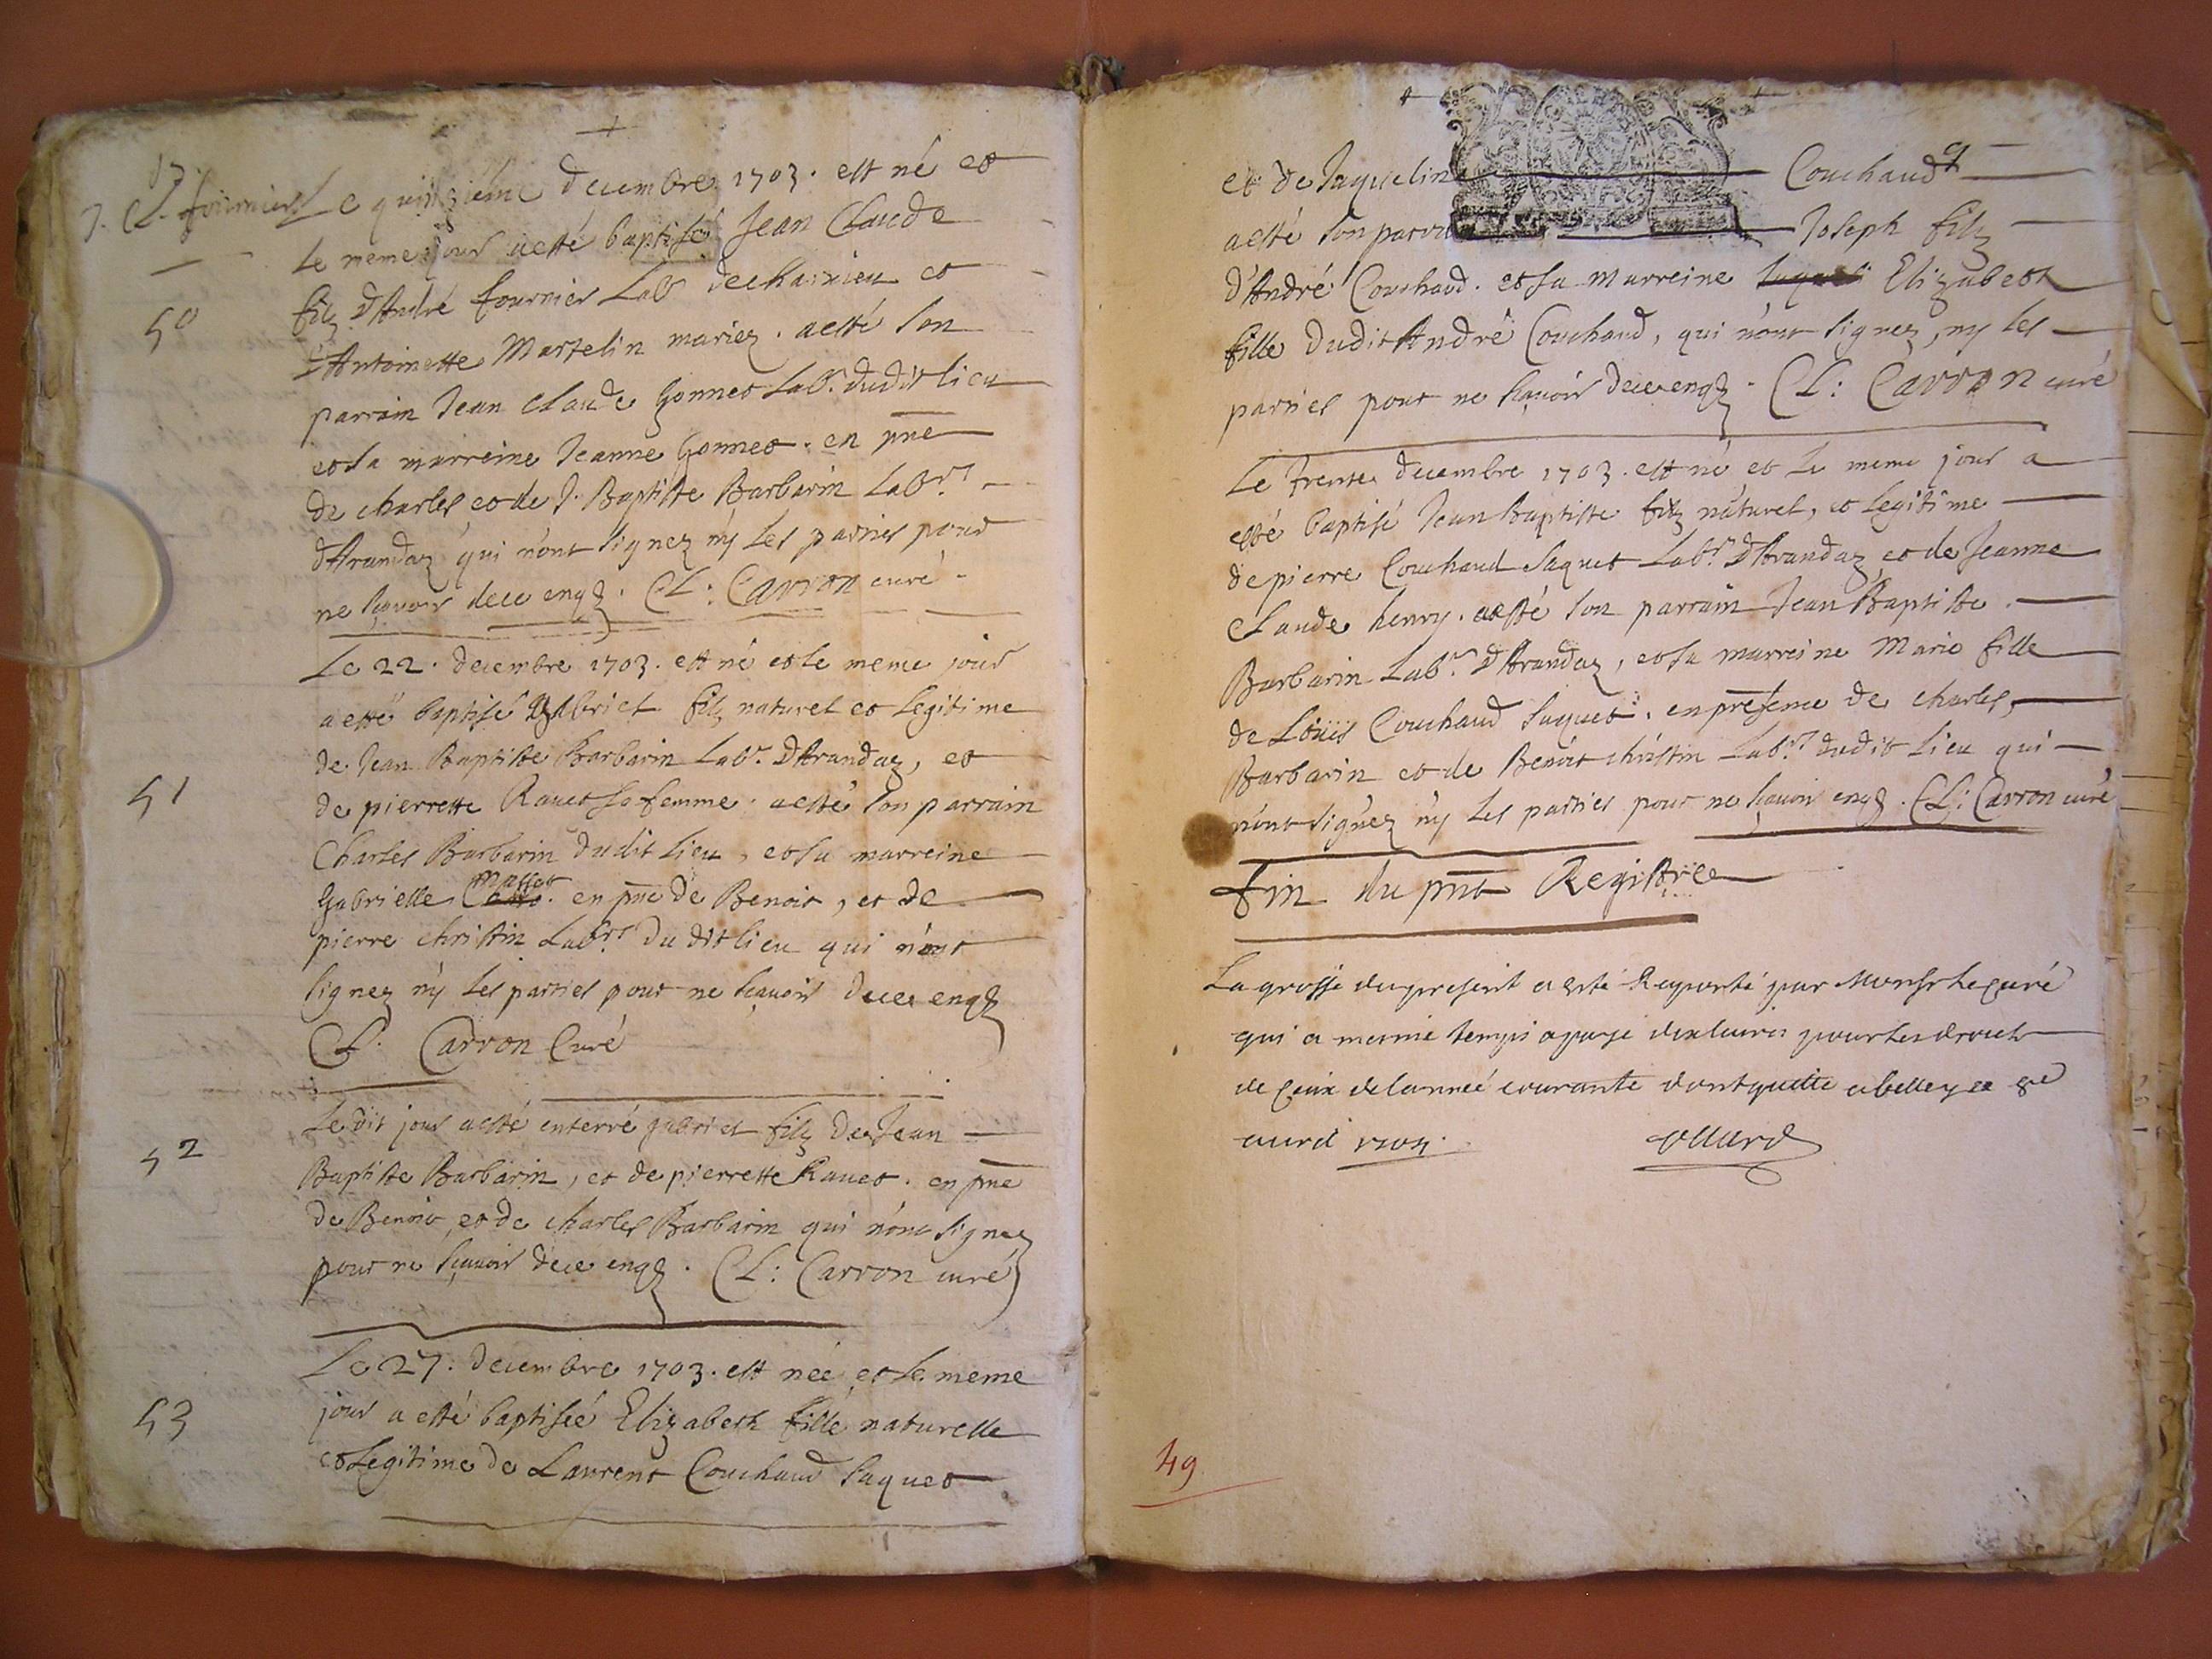 J. Cl. fournier Le quinzième decembre 1703. est né et
le meme jour a esté baptisé Jean Claude
50
filz d'André fournier Lab dechaisieu et
d'Antoinette Martelin mariez. a esté son
parrain Jean Claude Gonnet Labr. dudit lieu
et sa marreine Jeanne Gonnet. en pnce
de charles et de J. Baptiste Barbarin Labrs
d'Arandaz qui n'ont signez ny les parties pour
ne sçavoir de ce enqz. CL: Carron curé
Le 22. decembre 1703. est né et le meme jour
a esté baptisé gabriel filz naturel et legitime
de Jean Baptiste Barbarin Labr. d'Arandaz, et
51
de pierrette Ravet sa femme. a esté son parrain
Charles Barbarin dudit lieu, et sa marreine
Gabrielle masset en pnce de Benoit, et de
pierre christin Labrs du dit lieu qui n'ont
signez ny les parties pour ne sçavoir de ce enqz
CL. Carron Curé
Le dit jour a esté enterré gabriel filz de Jean
52
Baptiste Barbarin, et de pierrette Ravet. en pnce
de Benoit, et de charles Barbarin qui n'ont signez
pour ne sçavoir de ce enqz. CL: Carron curé
Le 27. decembre 1703. est née et le meme
53
jour a esté baptiseé Elizabeth fille naturelle
et Legitime de Laurent Couchaud saquet
et de Jaqueline Couchaud
a esté son parrain Joseph filz
d'André Couchaud. et sa marreine Elizabeth
fille dudit André Couchaud, qui n'ont signez, ny les
parties pour ne sçavoir de ce enqz. CL: Carron curé
Le trente decembre 1703. est né et le meme jour a
esté baptisé Jean Baptiste filz naturel, et legitime
de pierre Couchaud saquet Labr. d'Arandaz et de Jeanne
Claude henry. a esté son parrain Jean Baptiste
Barbarin Labr. d'Arandaz, et sa marreine Marie fille
de Loüis Couchaud saquet. en presence de charles
Barbarin et de Benoit christin Labrs dudit lieu qui
n'ont signez ny les parties pour ne sçavoir enqz. CL: Carron curé
Fin du pnt Registre
La grosse du present a esté Raporté par Monsr le curé
qui a mesme temps a paye dix livres pour les droits
de ceux de lanneé courante dont quitte a belley ce 8e
avril 1704.
49